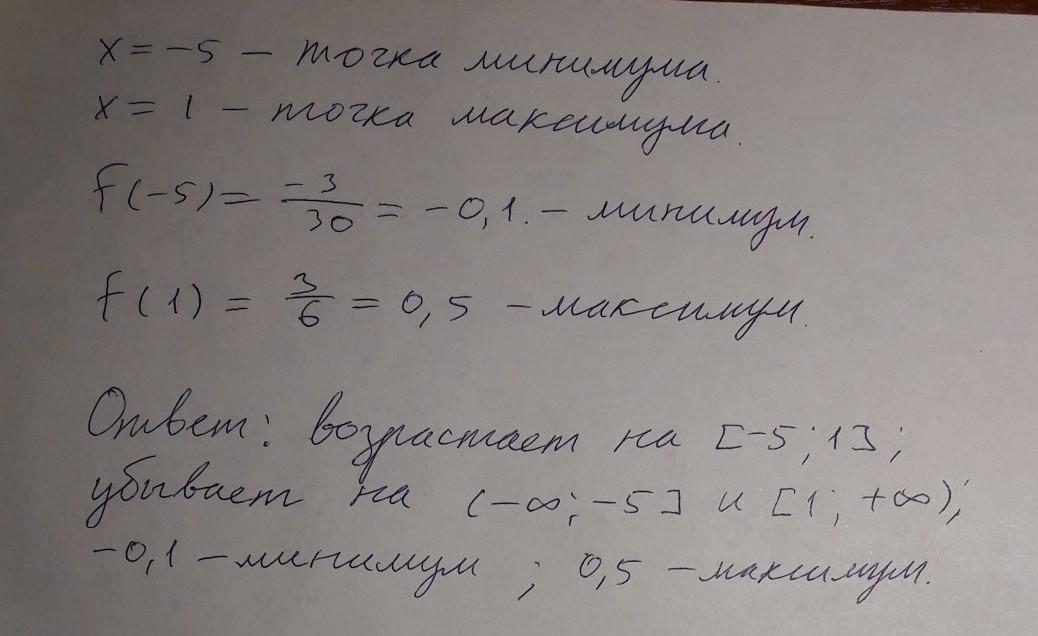 x = -5 – точка минимума.
x = 1 – точка максимума.
f(-5) = -3/30 = -0,1. – минимум.
f(1) = 3/6 = 0,5 – максимум.
Ответ: возрастает на [-5; 1];
убывает на (-∞; -5] и [1; +∞);
-0,1 – минимум ; 0,5 – максимум.